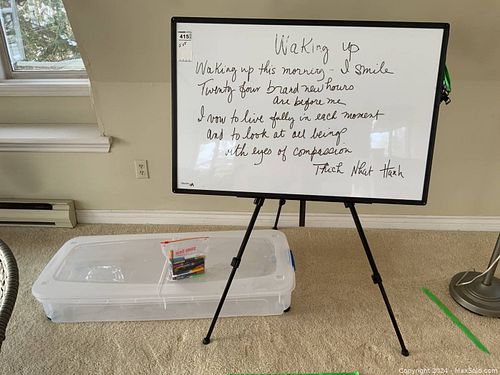 415
Waking up
Waking up this morning - I smile
Twenty four brand new hours
are before me
I vow to live fully in each moment
and to look at all beings
with eyes of compassion
Thich Nhat Hanh
Copyright 2024 - MaxSold.com